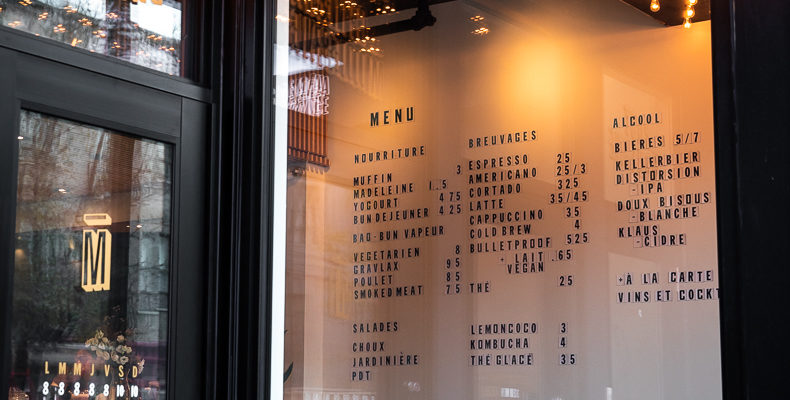 M
L M M J V S D
8 8 8 8 8 10 10
MENU
NOURRITURE
MUFFIN 3
MADELEINE 1.5
YOGOURT 4 75
BUN DEJEUNER 4 25
BAO-BUN VAPEUR
VEGETARIEN 8
GRAVLAX 95
POULET 85
SMOKED MEAT 75
SALADES
CHOUX
JARDINIÈRE
PDT
BREUVAGES
ESPRESSO 25
AMERICANO 25/3
CORTADO 325
LATTE 35/45
CAPPUCCINO 35
COLD BREW 4
BULLETPROOF 525
+ LAIT .65
VEGAN
THÉ 25
LEMONCOCO 3
KOMBUCHA 4
THÉ GLACÉ 35
ALCOOL
BIERES 5/7
KELLERBIER
DISTORSION
-IPA
DOUX BISOUS
-BLANCHE
KLAUS
-CIDRE
+À LA CARTE
VINS ET COCKT